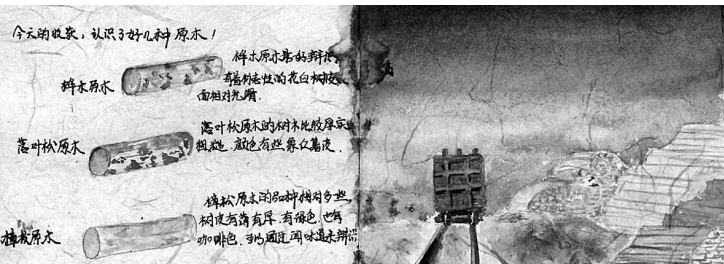 今天的收获，认识了好几种原木！
桦木原木
桦木原木最好辨识，
有着标志性的花白树皮，
面相对光滑．
落叶松原木
落叶松原木的树木比较厚实
粗糙．颜色有些象红薯皮．
樟松原木
樟松原木的品种相对多些
树皮有薄有厚．有绿色．也有
咖啡色．可以通过闻味道来辨识